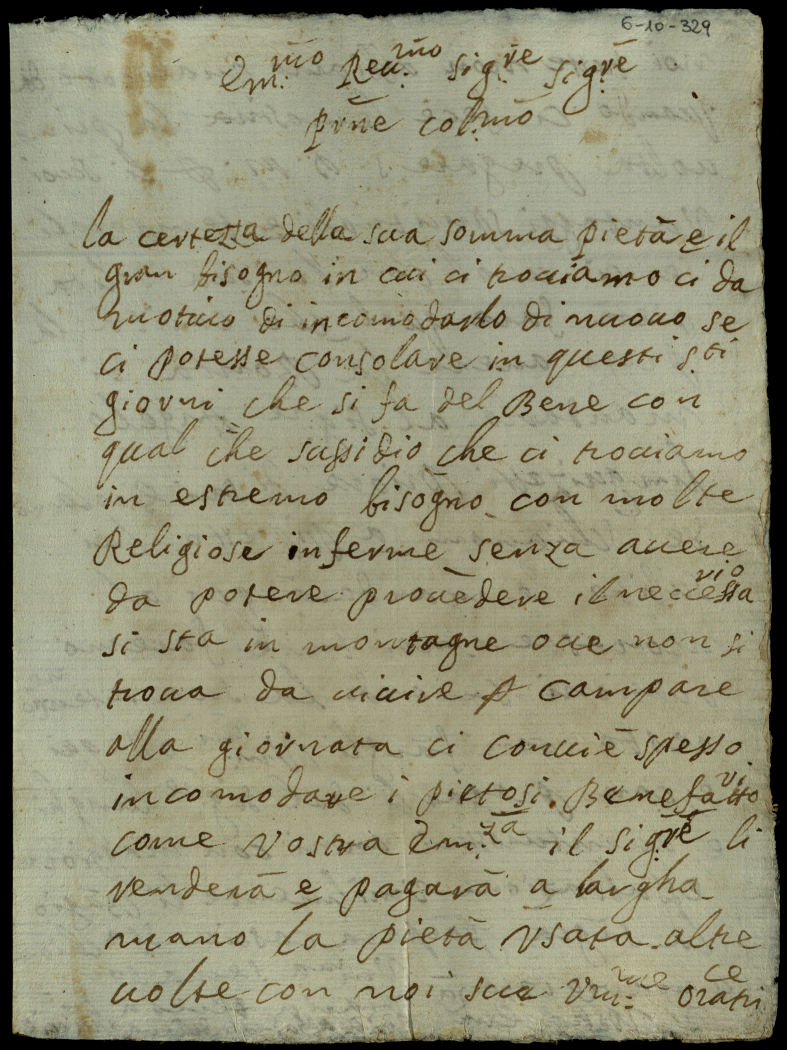 6-10-329
Em.mo Reu.mo Sig.re Sig.re
Prne colmo
la certezza della sua somma pietà e il
gran bisogno in cui ci trouiamo ci da
motiuo di incomodarlo di nuouo se
ci potesse consolare in questi sti
giorni che si fa del Bene con
qual che sussidio che ci trouiamo
in estremo bisogno con molte
Religiose inferme senza auere
da potere prouedere il necessario
si sta in montagne oue non si
troua da uiuire p campare
alla giornata ci conuiē spesso
incomodare i pietosi Benefattori
come Vostra Em.za il sig.re li
renderà e pagarà a largha
mano la pietà Vsata altre
uolte con noi sue Vm.me oratrice